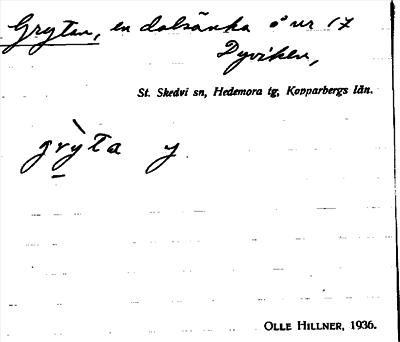 Grytan, en dalsänka å nr 17
Dyviken,
St. Skedvi sn, Hedemora tg, Kopparbergs län.
grỳta y
OLLE HILLNER, 1936.